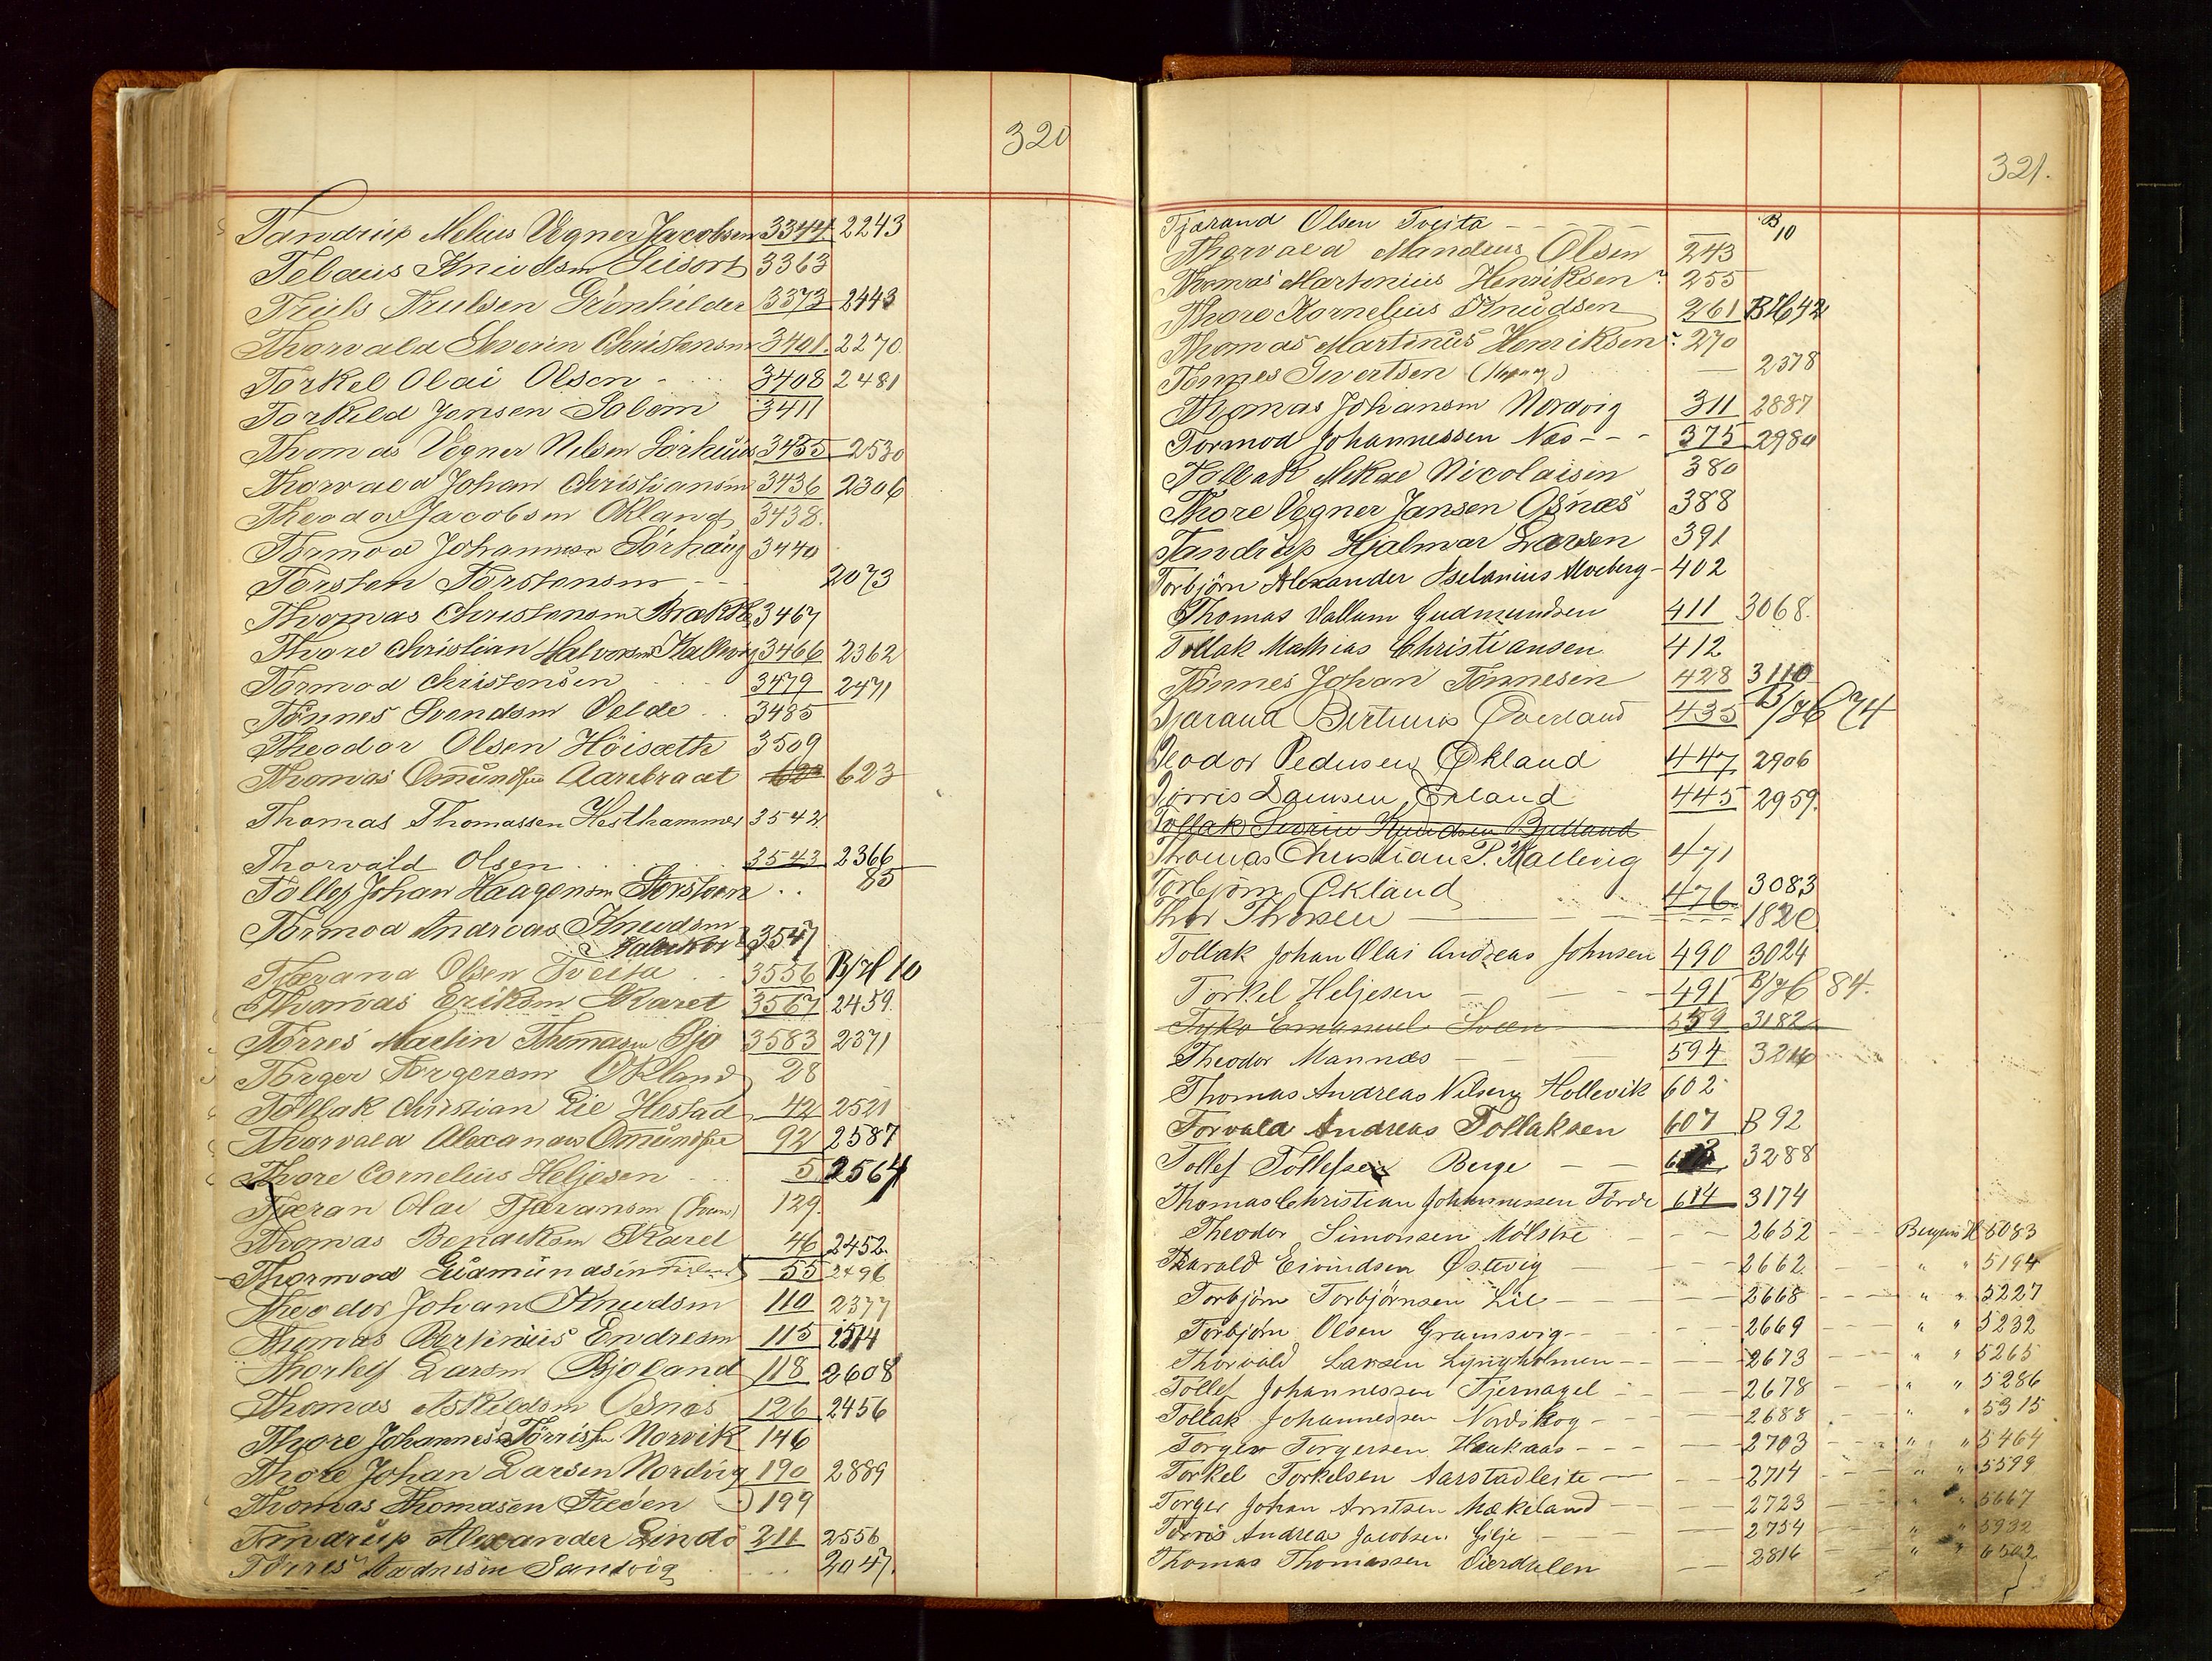 320
Tandrup Melius Vegner Jacobsen 3344 2243
Tebaus Knudsen 3363
Truls Trulsen Grönhilder 3373 2443
Thorvald Severin Christensen 3401. 2270
Torkel Olai Olsen - 3408 2481
Torkild Jensen Salem 3411
Thomas Vegner Nilsen Sörhuus 3435 2530
Thorvald Johan Christiansen 3436 2306
Theodor Jacobsen Økland 3438.
Tormod Johannesen Sörhaug 3440
Torsten Torstensen - - 2073
Thomas Christensen Brække 3467
Thore Christian Halvorsen Kallevig 3466 2362
Tormod Christensen 3479 2471
Tönnes Svendsen Velde 3485
Theodor Olsen Höisæth 3509
Thomas Omundsen Aarebraat 623 623
Thomas Thomassen Hesthammer 3542.
Thorvald Olsen 3543 2366
Tollef Johan Haagensen Storsteen 85
Tormod Andreas Knudsen 3547
Tjærand Olsen Tveita 3556 B/H 10
Thomas Eriksen Skaret 3567 2459
Törres Martin Thomasen Sjo 3583 2371
Torger Torgersen Økland 28
Tollak Christian Lie Hestad 42 2521
Thorvald Alexander Omundsen 92 2587
Thore Cornelius Heljesen 5 2564
Tjæran Olai Tjæransen 129
Thomas Bendiksen Skaret 46 2452
Thormod Gudmundsen 55 2496
Theodor Johan Knudsen 110 2377
Thomas Bertinius Endresen 115 2514
Thorleif Larsen Bjoland 118 2608
Thomas Askildsen Osnes 126 2456
Thore Johannes Törrissen Norvik 146
Thore Johan Larsen Nordvig 190 2889
Thomas Thomasen 199
Tandrup Alexander Lindö 211 2556
Törres Aadnesen Sandvig 2047.
321.
Tjærand Olsen Tveita - - - B/10
Thorvald Mandius Olsen 243
Thomas Martinius Henriksen 255
Thore Kornelius Knudsen 261 B/H 42
Thomas Martinus Henriksen 270
Tönnes Sivertsen 2378
Thomas Johansen Nordvig 311 2887
Tormod Johannessen Næs - - - 375 2980
Tollak Mekal Nicolaisen 380
Thore Vegner Jansen Osnæs 388
Tandrup Hjalmar Larsen 391
Torbjörn Alexander Aselanius Moeberg - 402
Thomas Vallum Gudmundsen 411 3068.
Tollak Mathias Christiansen 412
Tönnes Johan Tönnesen 428 3110
Tjærand Bertinus Överland 435 B/H 74
Teodor Pedersen Økland 447 2906
Törris Larsen Erland 445 2959.
Tollak Sverin Knudsen Bjelland
Thomas Christian P. Kallevig 471
Torbjörn Økland 476 3083
Thor Thorsen 1820
Tollak Johan Olai Andreas Johnsen 490 3024
Torkel Heljesen - - - 491 B/H 84.
Tyko Emanuel Sveen 559 3182
Theodor Mannæs 594 3216
Thomas Andreas Nilsen Hollevik 602
Torvald Andreas Tollaksen 607 B 92
Tollef Tollefsen Berge 3288
Thomas Christian Johannessen Förde 614 3174
Theodor Simonsen Mölstre - - - 2652 - - - Bergens H 5083
Harald Eivindsen Østevig 2662 " " 5194
Torbjörn Torbjörnsen Lie 2668 - - - " " 5227
Torbjörn Olsen Gramsvig - - 2669 - - - " " 5232
Thorvald Larsen Lyngholmen - - 2673 - - - " " 5265
Tollef Johannessen Tjernagel - - 2678 - - - " " 5286
Tollak Johannessen Nordskog - 2688 " 5315
Torger Torgersen Haukaas - - - 2703 - - " " 5464
Torkel Torkelsen Aarstadleite - 2714 - " " 5599
Torger Johan Arntsen Mækeland - 2723 " " 5667
Törris Andreas Jacobsen Gilje 2754 " " 5932
Thomas Thomassen Dierdalen - - 2816 " " 6502